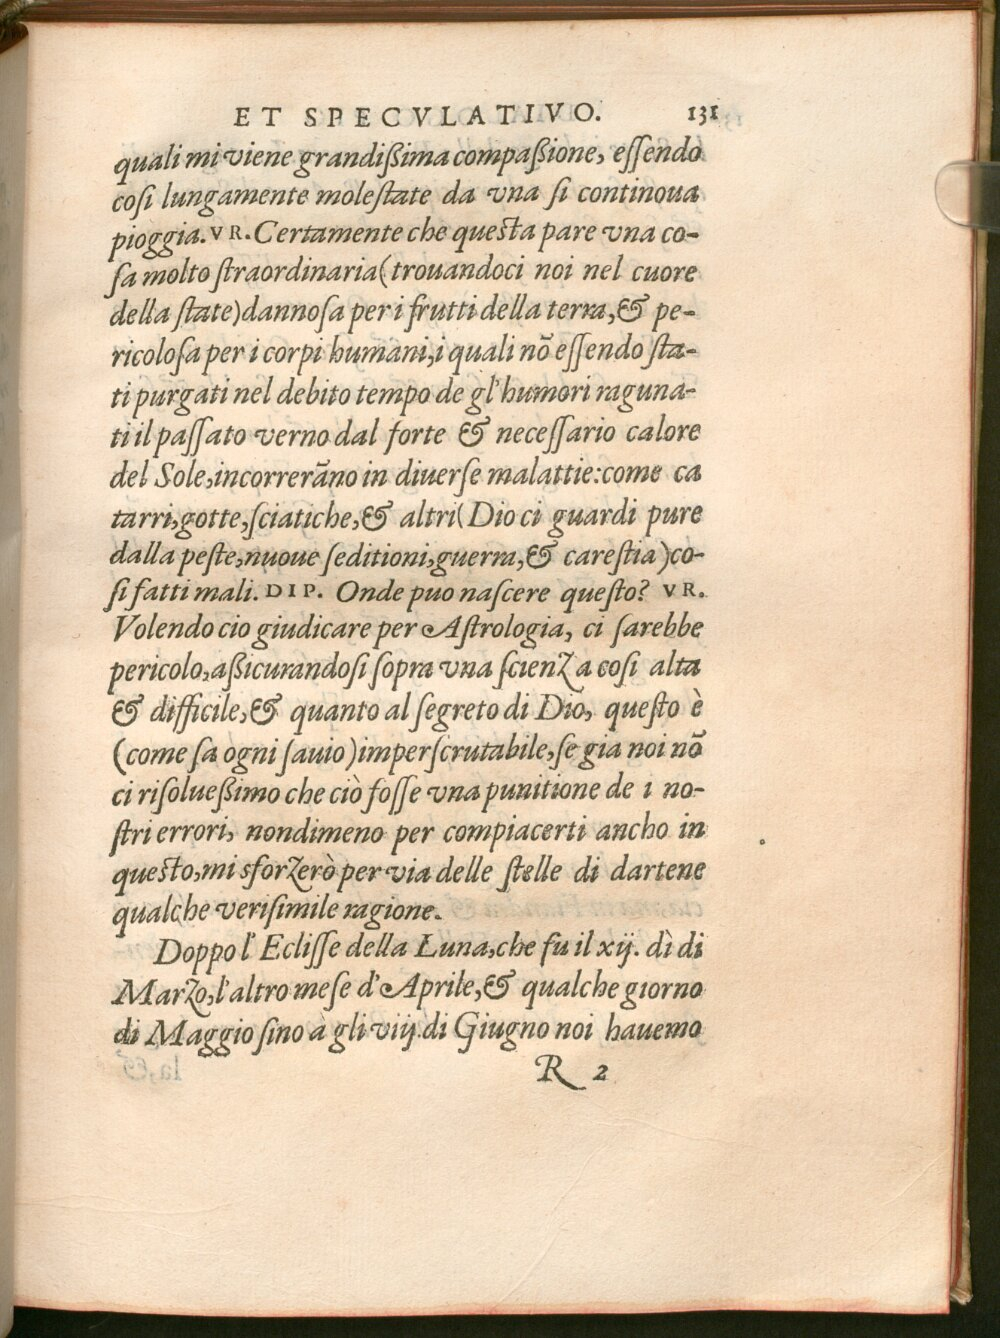 ET SPECVLATIVO. 131
quali mi viene grandißima compaßione, eſſendo
coſi lungamente moleſtate da vna ſi continoua
pioggia. VR. Certamente che queſta pare vna co-
ſa molto ſtraordinaria (trouandoci noi nel cuore
della ſtate) dannoſa per i frutti della terra, & pe-
ricoloſa per i corpi humani, i quali nō eſſendo ſta-
ti purgati nel debito tempo de gl'humori raguna-
ti il paſſato verno dal forte & neceſſario calore
del Sole, incorrerāno in diuerſe malattie: come ca
tarri, gotte, ſciatiche, & altri (Dio ci guardi pure
dalla peſte, nuoue ſeditioni, guerra, & careſtia) co-
ſi fatti mali. DIP. Onde puo naſcere queſto? VR.
Volendo cio giudicare per Aſtrologia, ci ſarebbe
pericolo, aßicurandoſi ſopra vna ſcienza coſi alta
& difficile, & quanto al ſegreto di Dio, queſto è
(come ſa ogni ſauio) imperſcrutabile, ſe gia noi nō
ci riſolueßimo che ciò foſſe vna punitione de i no-
ſtri errori, nondimeno per compiacerti ancho in
queſto, mi sforzerò per via delle ſtelle di dartene
qualche veriſimile ragione.
Doppo l'Ecliſſe della Luna, che fu il xij. dì di
Marzo, l'altro meſe d'Aprile, & qualche giorno
di Maggio ſino à gli viij. di Giugno noi hauemo
R 2